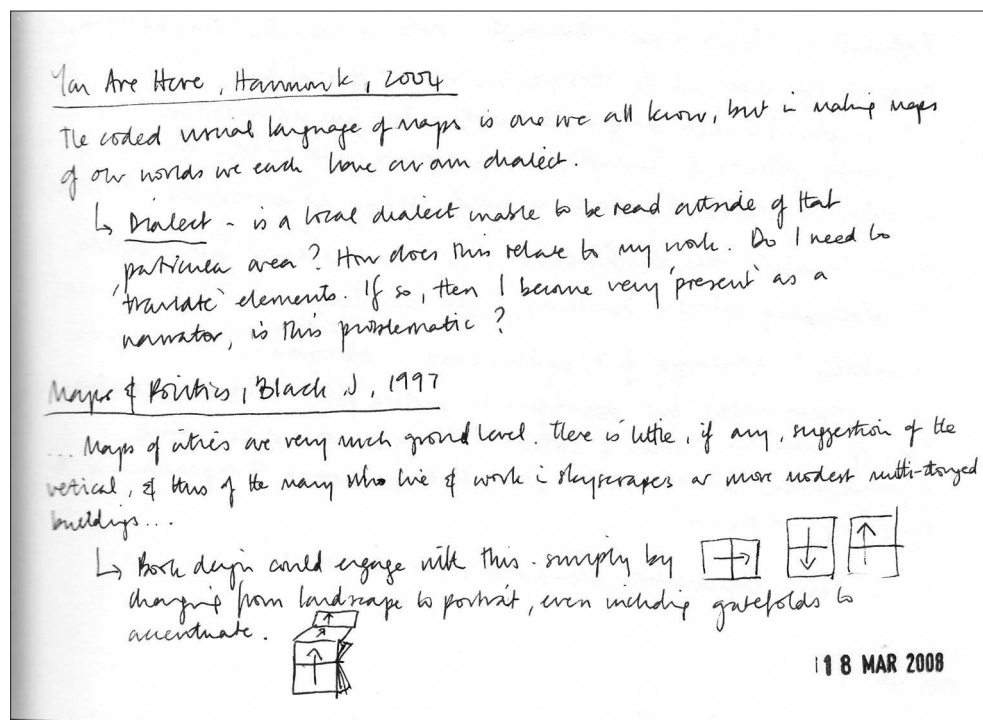 You Are Here, Harmonk, 2004
The coded visual language of maps is one we all know, but in making maps
of our worlds we each have our own dialect.
↳ Dialect - is a local dialect unable to be read outside of that
particular area? How does this relate to my work. Do I need to
'translate' elements. If so, then I become very 'present' as a
narrator, is this problematic?
Maps & Politics, Black J, 1997
... Maps of cities are very much ground level. There is little, if any, suggestion of the
vertical, & thus of the many who live & work in skyscrapers or more modest multi-storyed
buildings...
↳ Book design could engage with this - simply by
changing from landscape to portrait, even including gatefolds to
accentuate.
18 MAR 2008